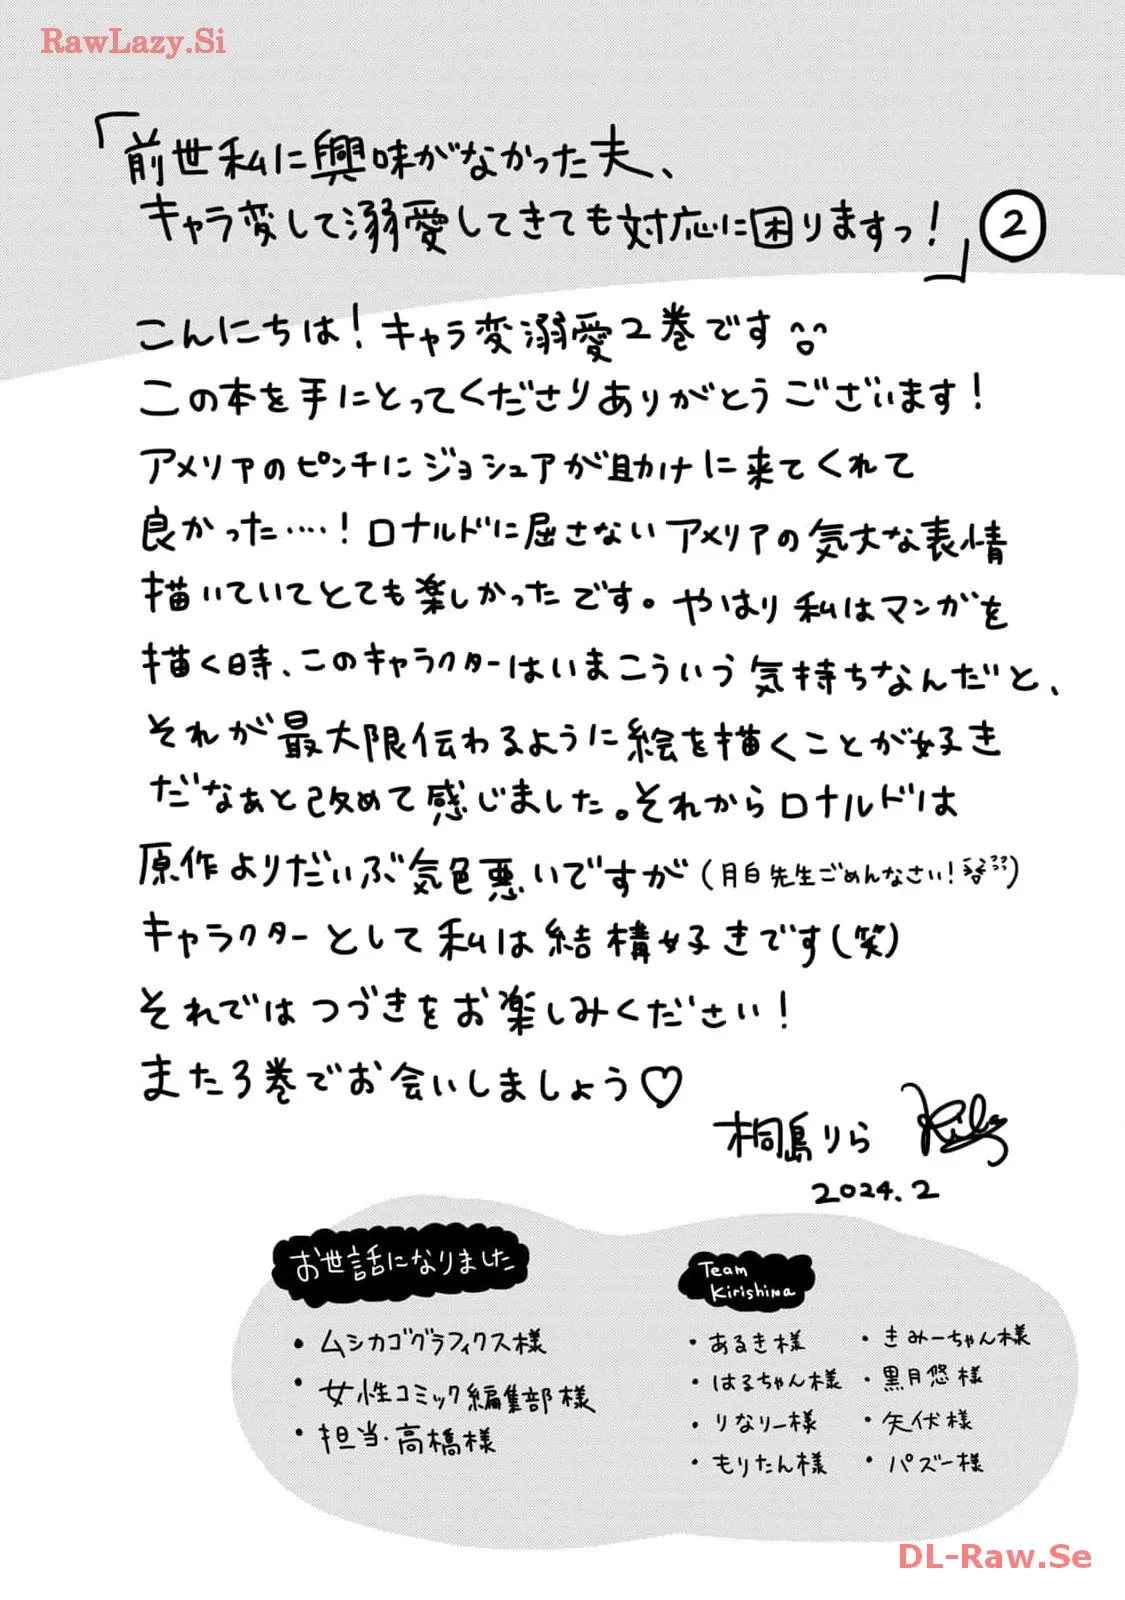 RawLazy.Si
「前世私に興味がなかった夫、
キャラ変して溺愛してきても対応に困りますっ！」②
こんにちは！キャラ変溺愛2巻です
この本を手にとってくださりありがとうございます！
アメリアのピンチにジョシュアが助けに来てくれて
良かった‥‥！ロナルドに屈さないアメリアの気丈な表情
描いていてとても楽しかったです。やはり私はマンガを
描く時、このキャラクターはいまこういう気持ちなんだと、
それが最大限伝わるように絵を描くことが好き
だなぁと改めて感じました。それからロナルドは
原作よりだいぶ気色悪いですが（月白先生ごめんなさい！）
キャラクターとして私は結構好きです（笑）
それではつづきをお楽しみください！
また3巻でお会いしましょう♡
桐島りら
2024.2
お世話になりました
・ムシカゴグラフィクス様
・女性コミック編集部様
・担当・高橋様
Team
Kirishima
・あるき様
・はるちゃん様
・りなりー様
・もりたん様
・きみーちゃん様
・黒月悠様
・矢伏様
・パズー様
DL-Raw.Se